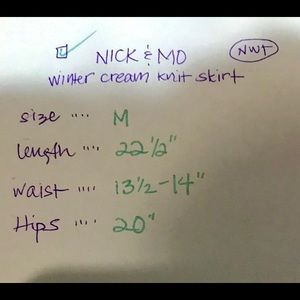 NICK & MO
NWT
winter cream knit skirt
size """ M
length """ 22 1/2"
waist """ 13 1/2-14"
Hips """ 20"